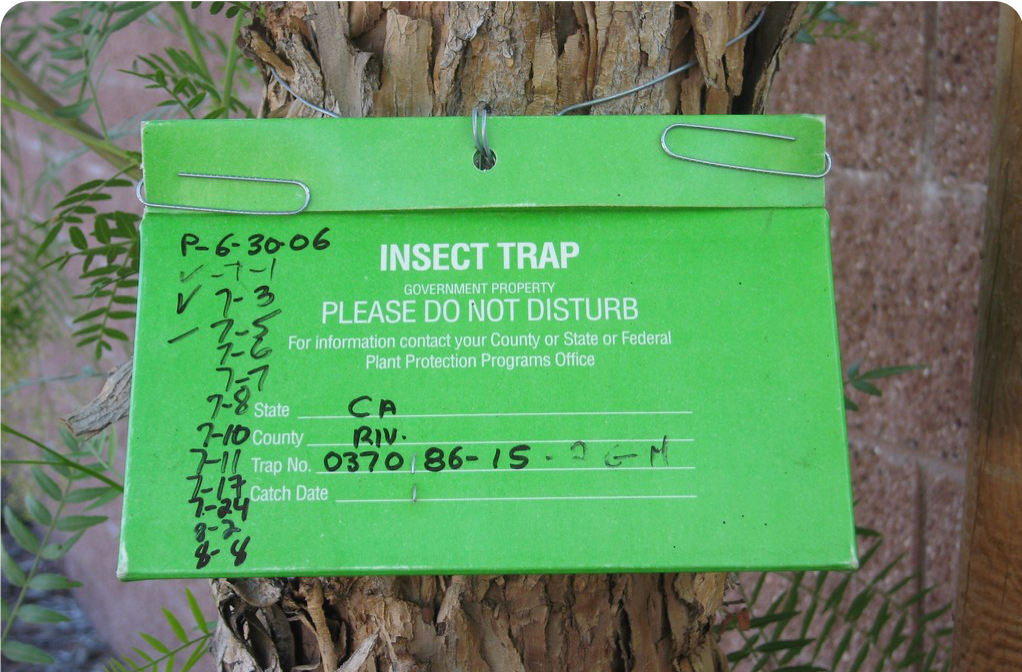 P-6-30-06
✓-7-1
✓ 7-3
- 7-5
7-6
7-7
7-8
7-10
7-11
7-17
7-24
8-2
8-8
INSECT TRAP
GOVERNMENT PROPERTY
PLEASE DO NOT DISTURB
For information contact your County or State or Federal
Plant Protection Programs Office
State CA
County RIV.
Trap No. 0370 86-15 - GM
Catch Date